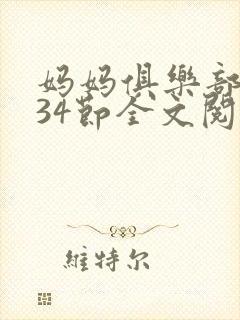 妈妈俱樂部
34節全文閱
維特尔